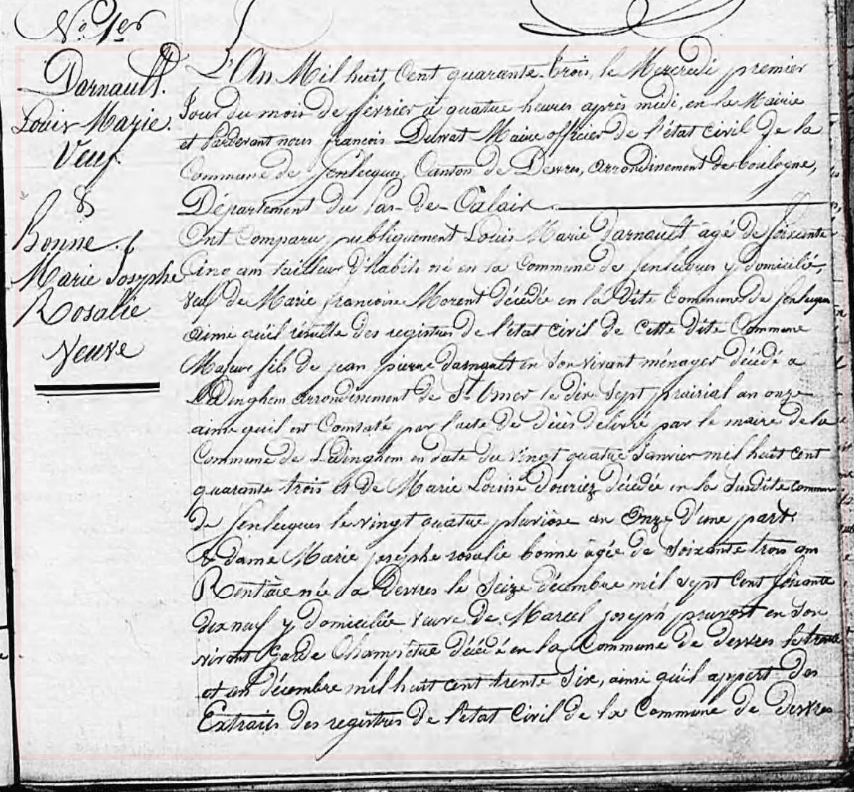 N.o 1er
Darnault.
Louis Marie.
Veuf
&
Bonne.
Marie Josephe
Rosalie
Veuve
L'An Mil huit Cent quarante-trois, le Mercredi premier
Jour du mois de février à quatre heures après midi, en la Mairie
et Pardevant nous françois Delrat Maire officier de l'état civil de la
Commune de Senlecques, Canton de Desvres, arrondissement de boulogne,
Département du Pas-de-Calais
Ont Comparu publiquement Louis Marie darnault agé de soixante
Cinq ans tailleur d'habits né en la Commune de Senlecques y domicilié
veuf de Marie françoise Morent décédée en la dite Commune de Senlecques
ainsi qu'il résulte des registres de l'état civil de cette dite Commune
Majeur fils de jean pierre darnault en son vivant ménager décédé a
Ledinghem arrondissement de St Omer le dix sept prairial an onze
ainsi qu'il est Constaté par l'acte de décès délivré par le maire de la
Commune de Ledinghem en date du vingt quatre Janvier mil huit cent
quarante trois et de Marie Louise Douriez décédée en la susdite commune
de Senlecques le vingt quatre pluviose an Onze d'une part
& dame Marie josephe rosalie bonne agée de soixante trois ans
Rentière née a Desvres le Seize décembre mil sept Cent Soixante
dix neuf y domiciliée veuve de Marcel joseph pruvost en son
vivant Garde Champêtre décédé en la Commune de desvres le trente
et un décembre mil huit cent trente Six, ainsi qu'il appert des
Extraits des registres de l'état Civil de la Commune de desvres